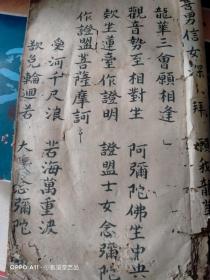 善男信女深 拜
龍華三會願相逢」
觀音勢至相對坐 阿彌陀佛坐中央
坐蓮臺作證明 證盟士女念彌陀
作證盟菩薩摩訶
愛河千尺浪 苦海萬重波
輪迴若 大衆念彌陀
OPPO A11